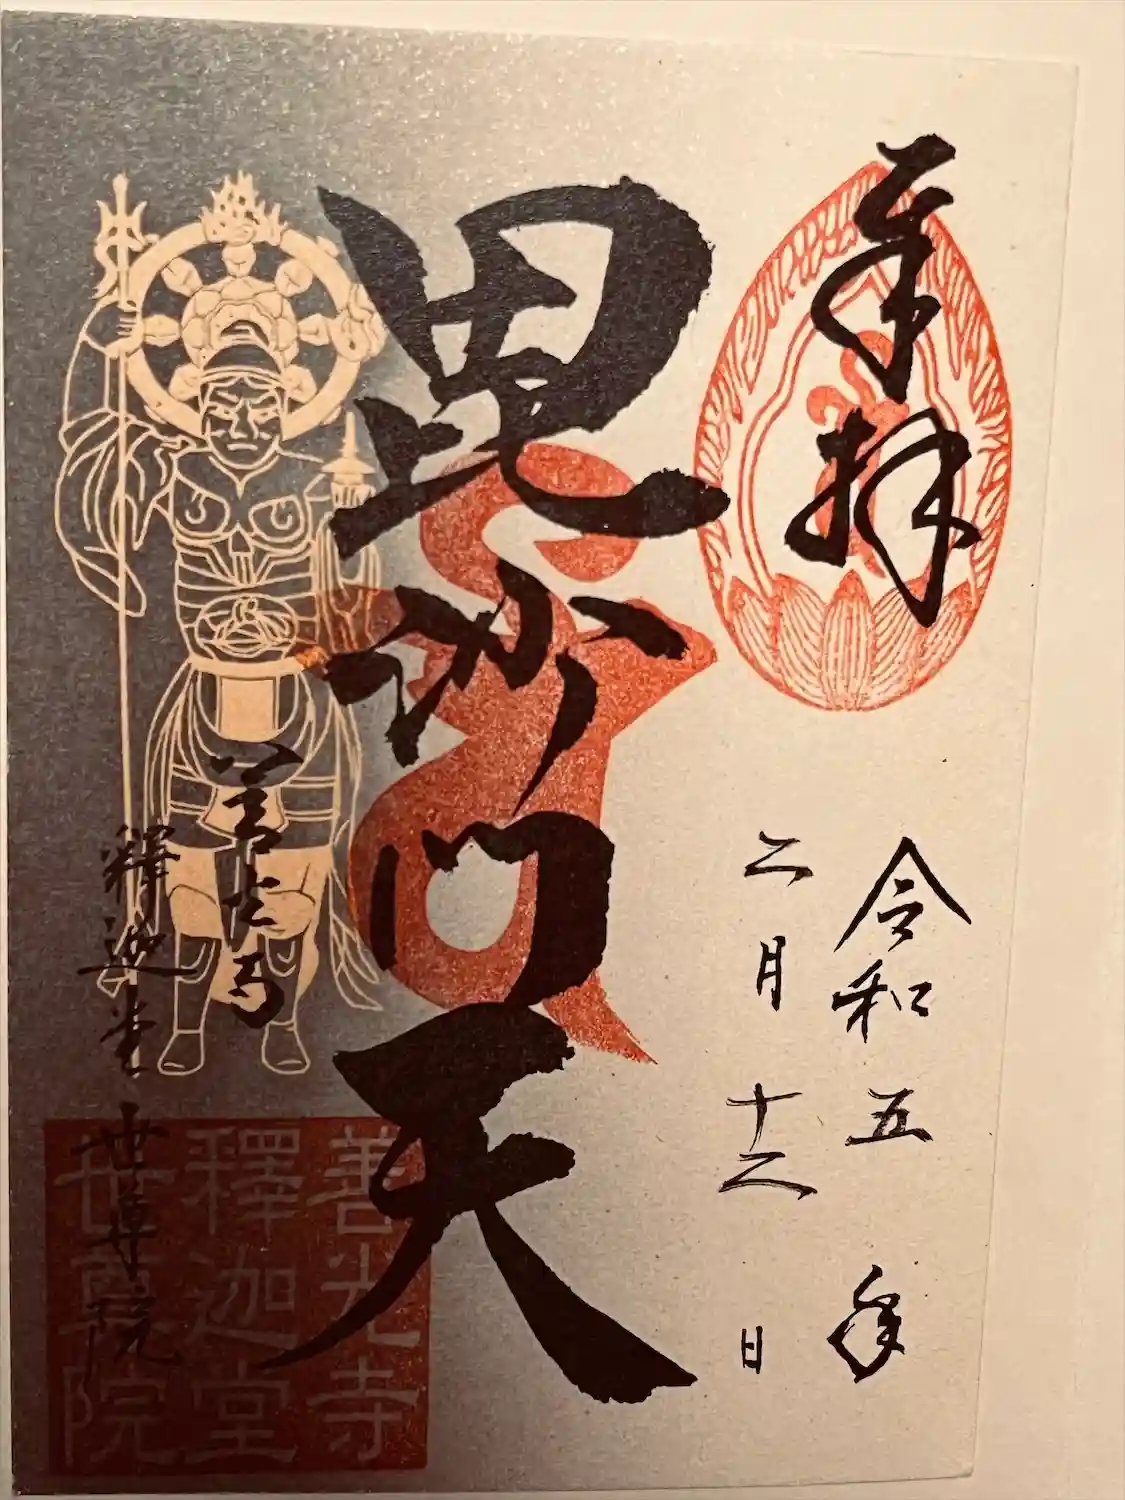 奉拝
令和五年
二月十二日
毘沙門天
善光寺
釋迦堂 世尊院
善光寺
釋迦堂
世尊院